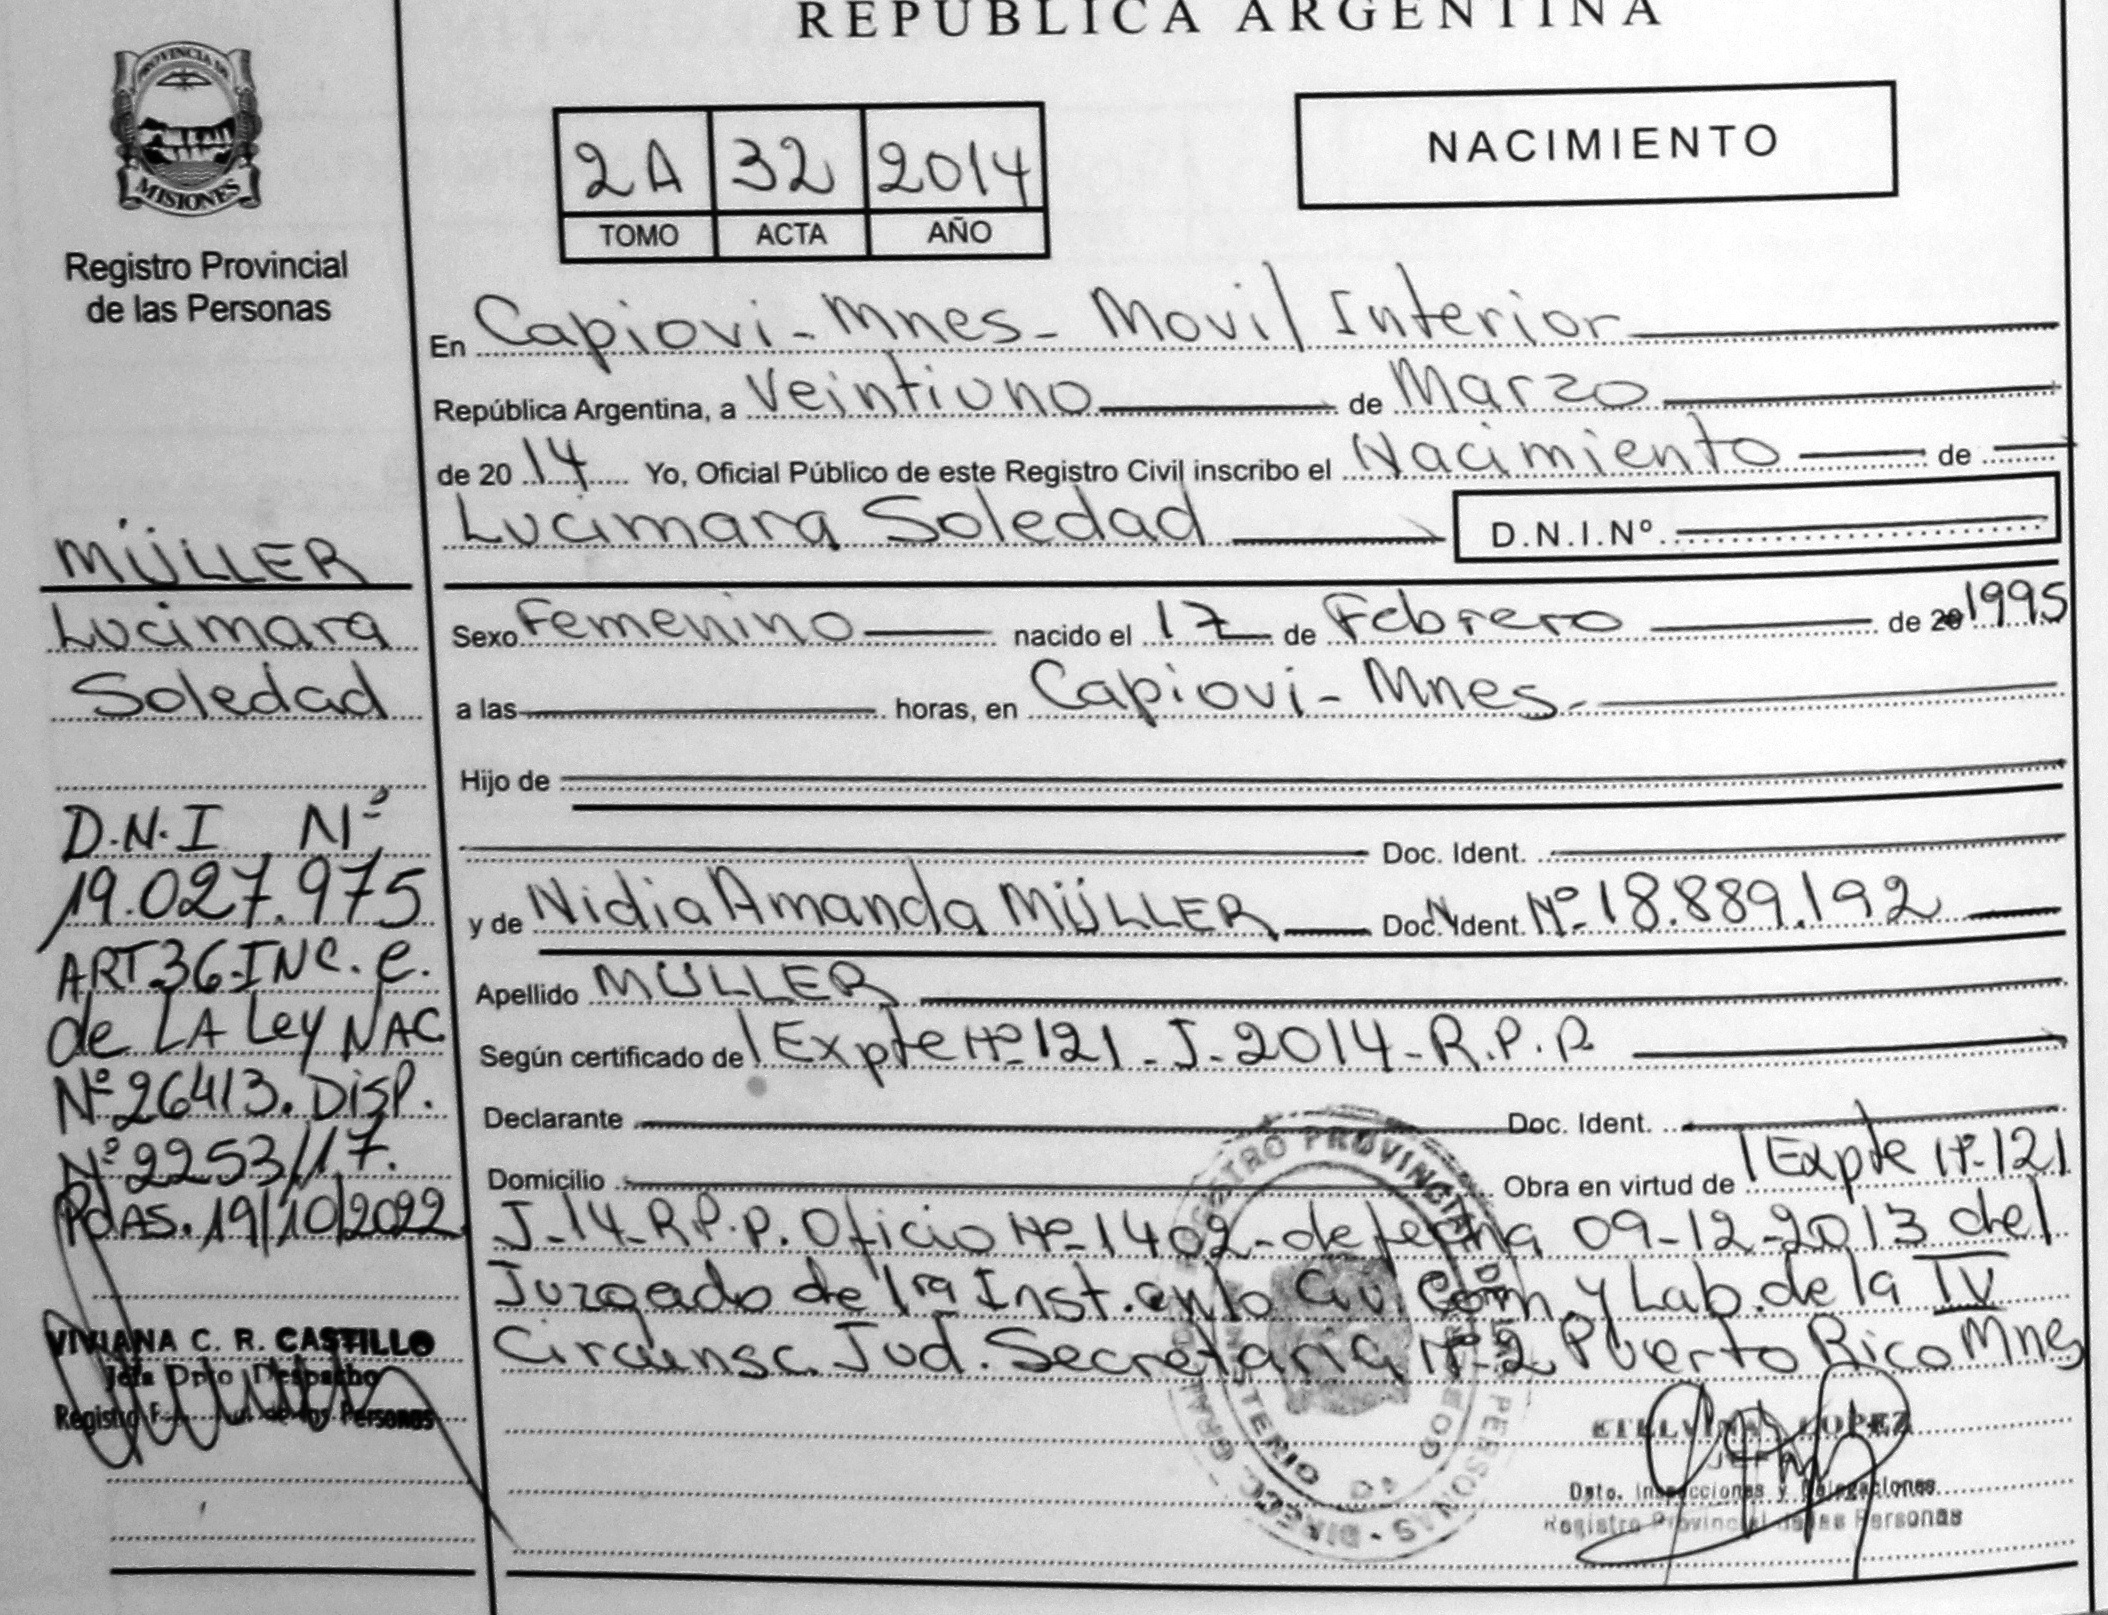 REPÚBLICA ARGENTINA
PROVINCIA DE
MISIONES
Registro Provincial
de las Personas
2A 32 2014
TOMO ACTA AÑO
NACIMIENTO
En Capiovi - Mnes - Movil Interior
República Argentina, a Veintiuno de Marzo
de 2014 Yo, Oficial Público de este Registro Civil inscribo el Nacimiento de
Lucimara Soledad D.N.I.Nº
Sexo Femenino nacido el 17 de Febrero de 20 1995
a las horas, en Capiovi - Mnes.
Hijo de
Doc. Ident.
y de Nidia Amanda MÜLLER Doc. Ident. Nº 18.889.192
Apellido MÜLLER
Según certificado de Expte Nº 121 - J - 2014 - R.P.P.
Declarante Doc. Ident.
Domicilio Obra en virtud de Expte Nº 121
J-14-R.P.P. Oficio Nº 1402 - de fecha 09-12-2013 del
Juzgado de 1ra Inst. en lo Civ. Com. y Lab. de la IV
Circunsc. Jud. Secretaria Nº 2 Puerto Rico Mnes
MÜLLER
Lucimara
Soledad
D.N.I Nº
19.027.975
ART 36 INC. e.
de LA Ley NAC
Nº 26413. DISP.
Nº 2253/17.
PdAS. 19/10/2022
VIVIANA C. R. CASTILLO
Jefa Dpto Despacho
Registro de las Personas
LOPEZ
Dpto. Inspecciones y Delegaciones
Registro Provincial de las Personas
REGISTRO PROVINCIAL DE LAS PERSONAS - DIRECC. GRAL.